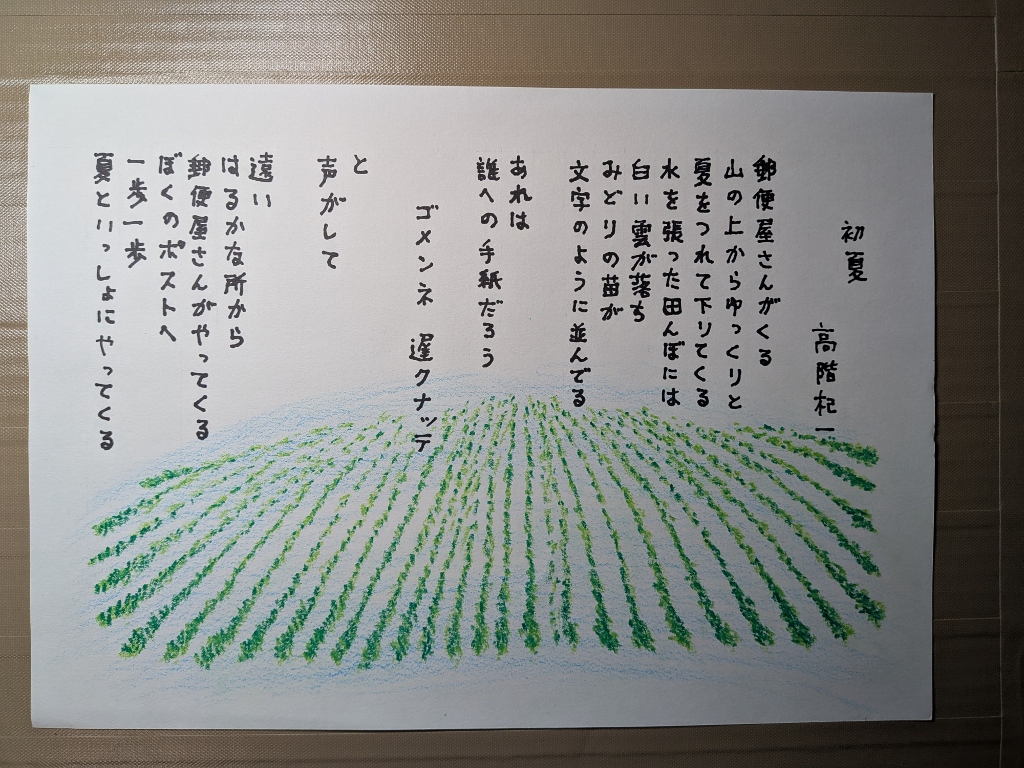 初夏
高階杞一
郵便屋さんがくる
山の上からゆっくりと
夏をつれて下りてくる
水を張った田んぼには
白い雲が落ち
みどりの苗が
文字のように並んでる
あれは
誰への手紙だろう
ゴメンネ 遅クナッテ
と
声がして
遠い
はるかな所から
郵便屋さんがやってくる
ぼくのポストへ
一歩一歩
夏といっしょにやってくる